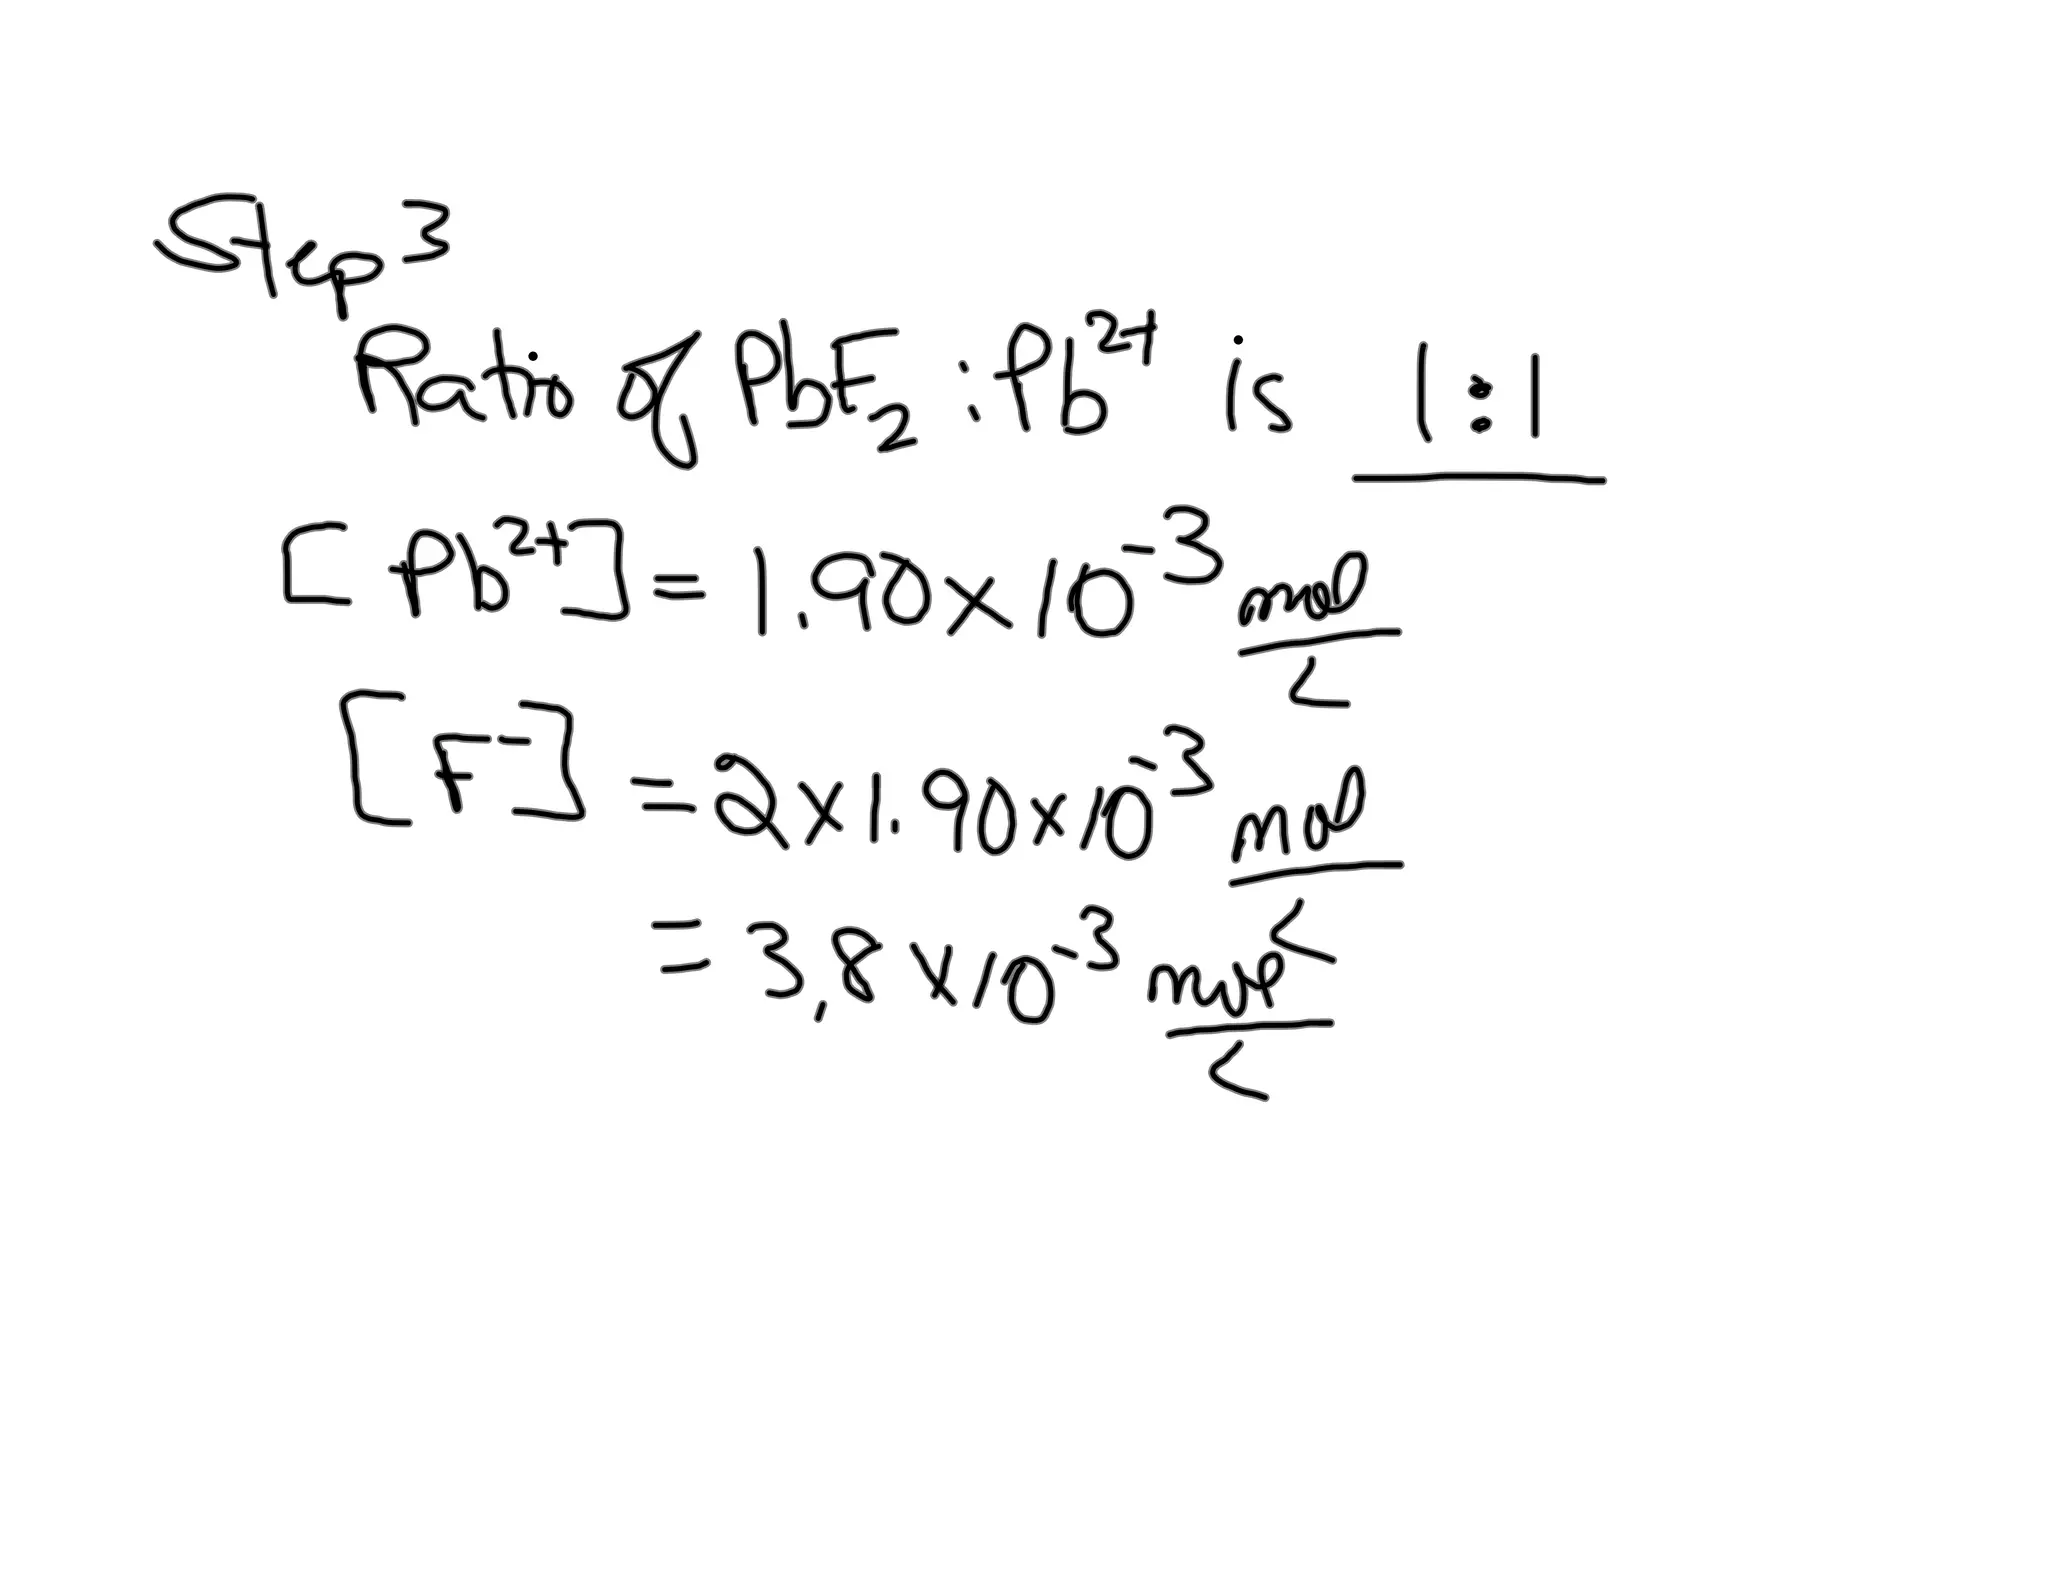 Step 3
Ratio of PbF₂ : Pb²⁺ is 1:1
[Pb²⁺] = 1.90 x 10⁻³ mol/L
[F⁻] = 2 x 1.90 x 10⁻³ mol/L
= 3.8 x 10⁻³ mol/L